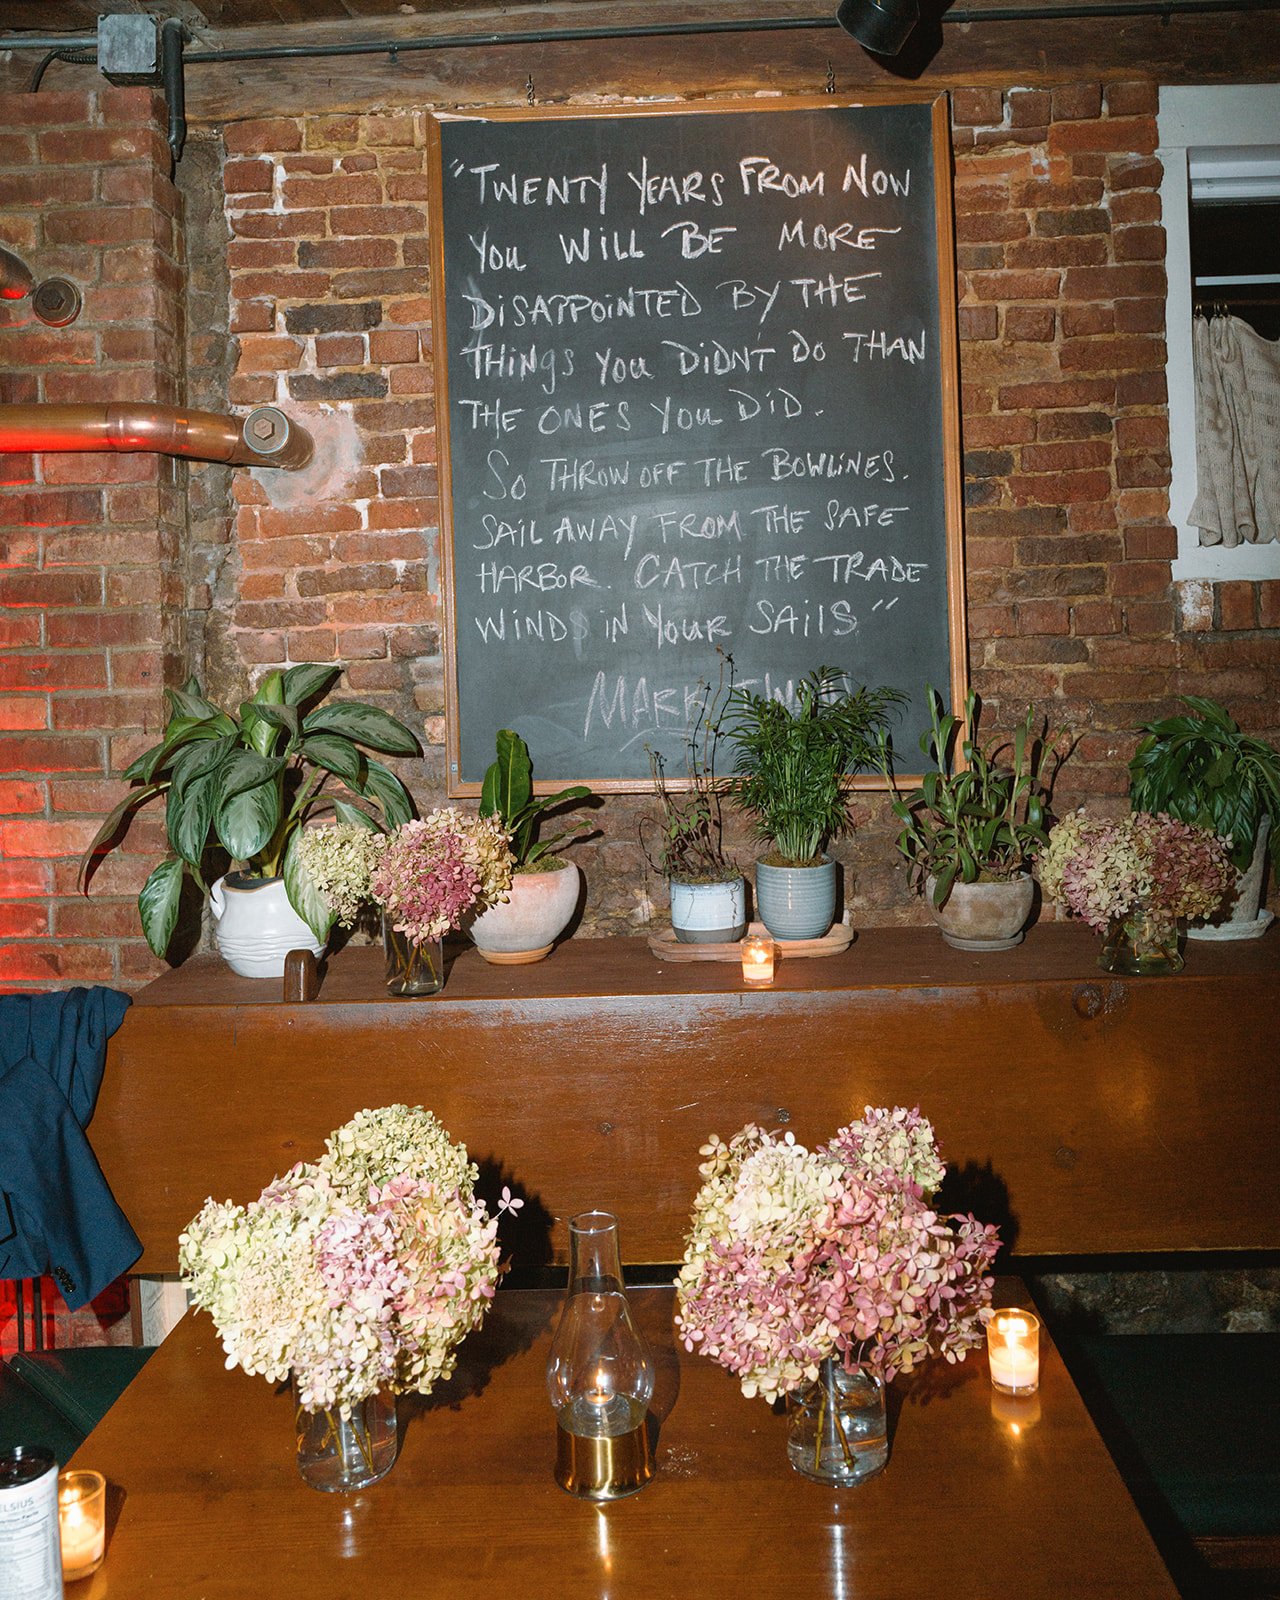 "TWENTY YEARS FROM NOW
You WiLL BE MORE
DiSAPPOiNTED BY THE
THiNgS You DiDN'T Do THAN
THE ONES You DiD.
So THROW OFF THE BOWLiNES.
SAiL AWAY FROM THE SAFE
HARBOR. CATCH THE TRADE
WiNDS iN YouR SAilS"
MARK TWAiN
ELSIUS